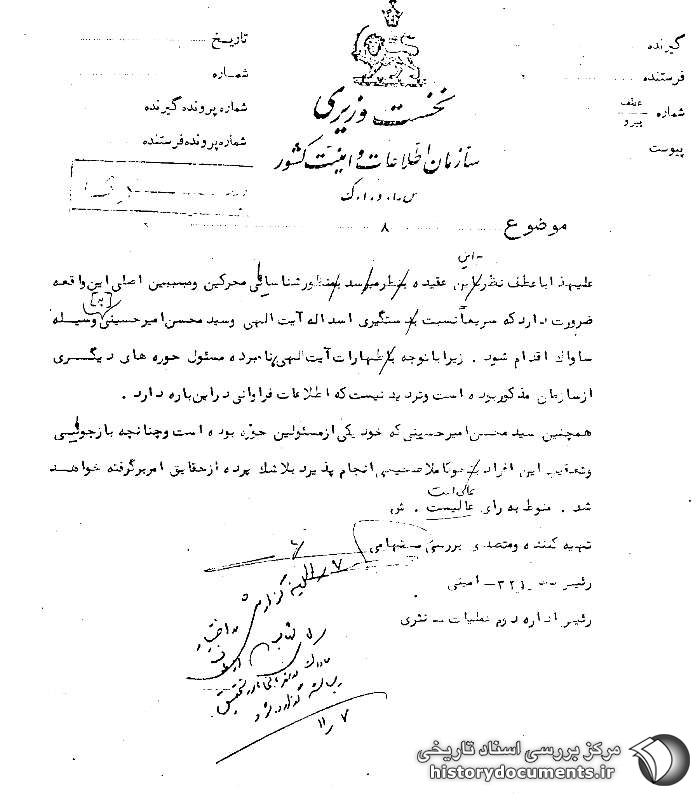 گیرنده
فرستنده
شماره عطف
پیرو
پیوست
نخست وزیری
سازمان اطلاعات و امنیت کشور
س.ا.و.ا.ک
تاریخ
شماره
شماره پرونده گیرنده
شماره پرونده فرستنده
موضوع ۸
علیهذا با عطف نظر این عقیده بنظر میرسد بمنظور شناسائی محرکین و مسببین اصلی این واقعه
ضرورت دارد که سریعاً نسبت بدستگیری اسداله آیت الهی و سید محسن امیرحسینی [به] وسیله
ساواک اقدام شود . زیرا با توجه باظهارات آیت الهی نامبرده مسئول حوزه های دیگری
از سازمان مذکور بوده است و تردید نیست که اطلاعات فراوانی در این باره دارد .
همچنین سید محسن امیرحسینی که خود یکی از مسئولین حوزه بوده است و چنانچه بازجوئی
و تعقیب این افراد بنحو کاملا صحیحی انجام پذیرد بلاشک پرده از حقایق امر برگرفته خواهد
شد . منوط به رای عالیست . ش
عالی است
تهیه کننده و متصدی بررسی
رئیس ۳۲۱ - امینی
رئیس اداره دوم عملیات - نثری
۱۱/۷
مرکز بررسی اسناد تاریخی
historydocuments.ir